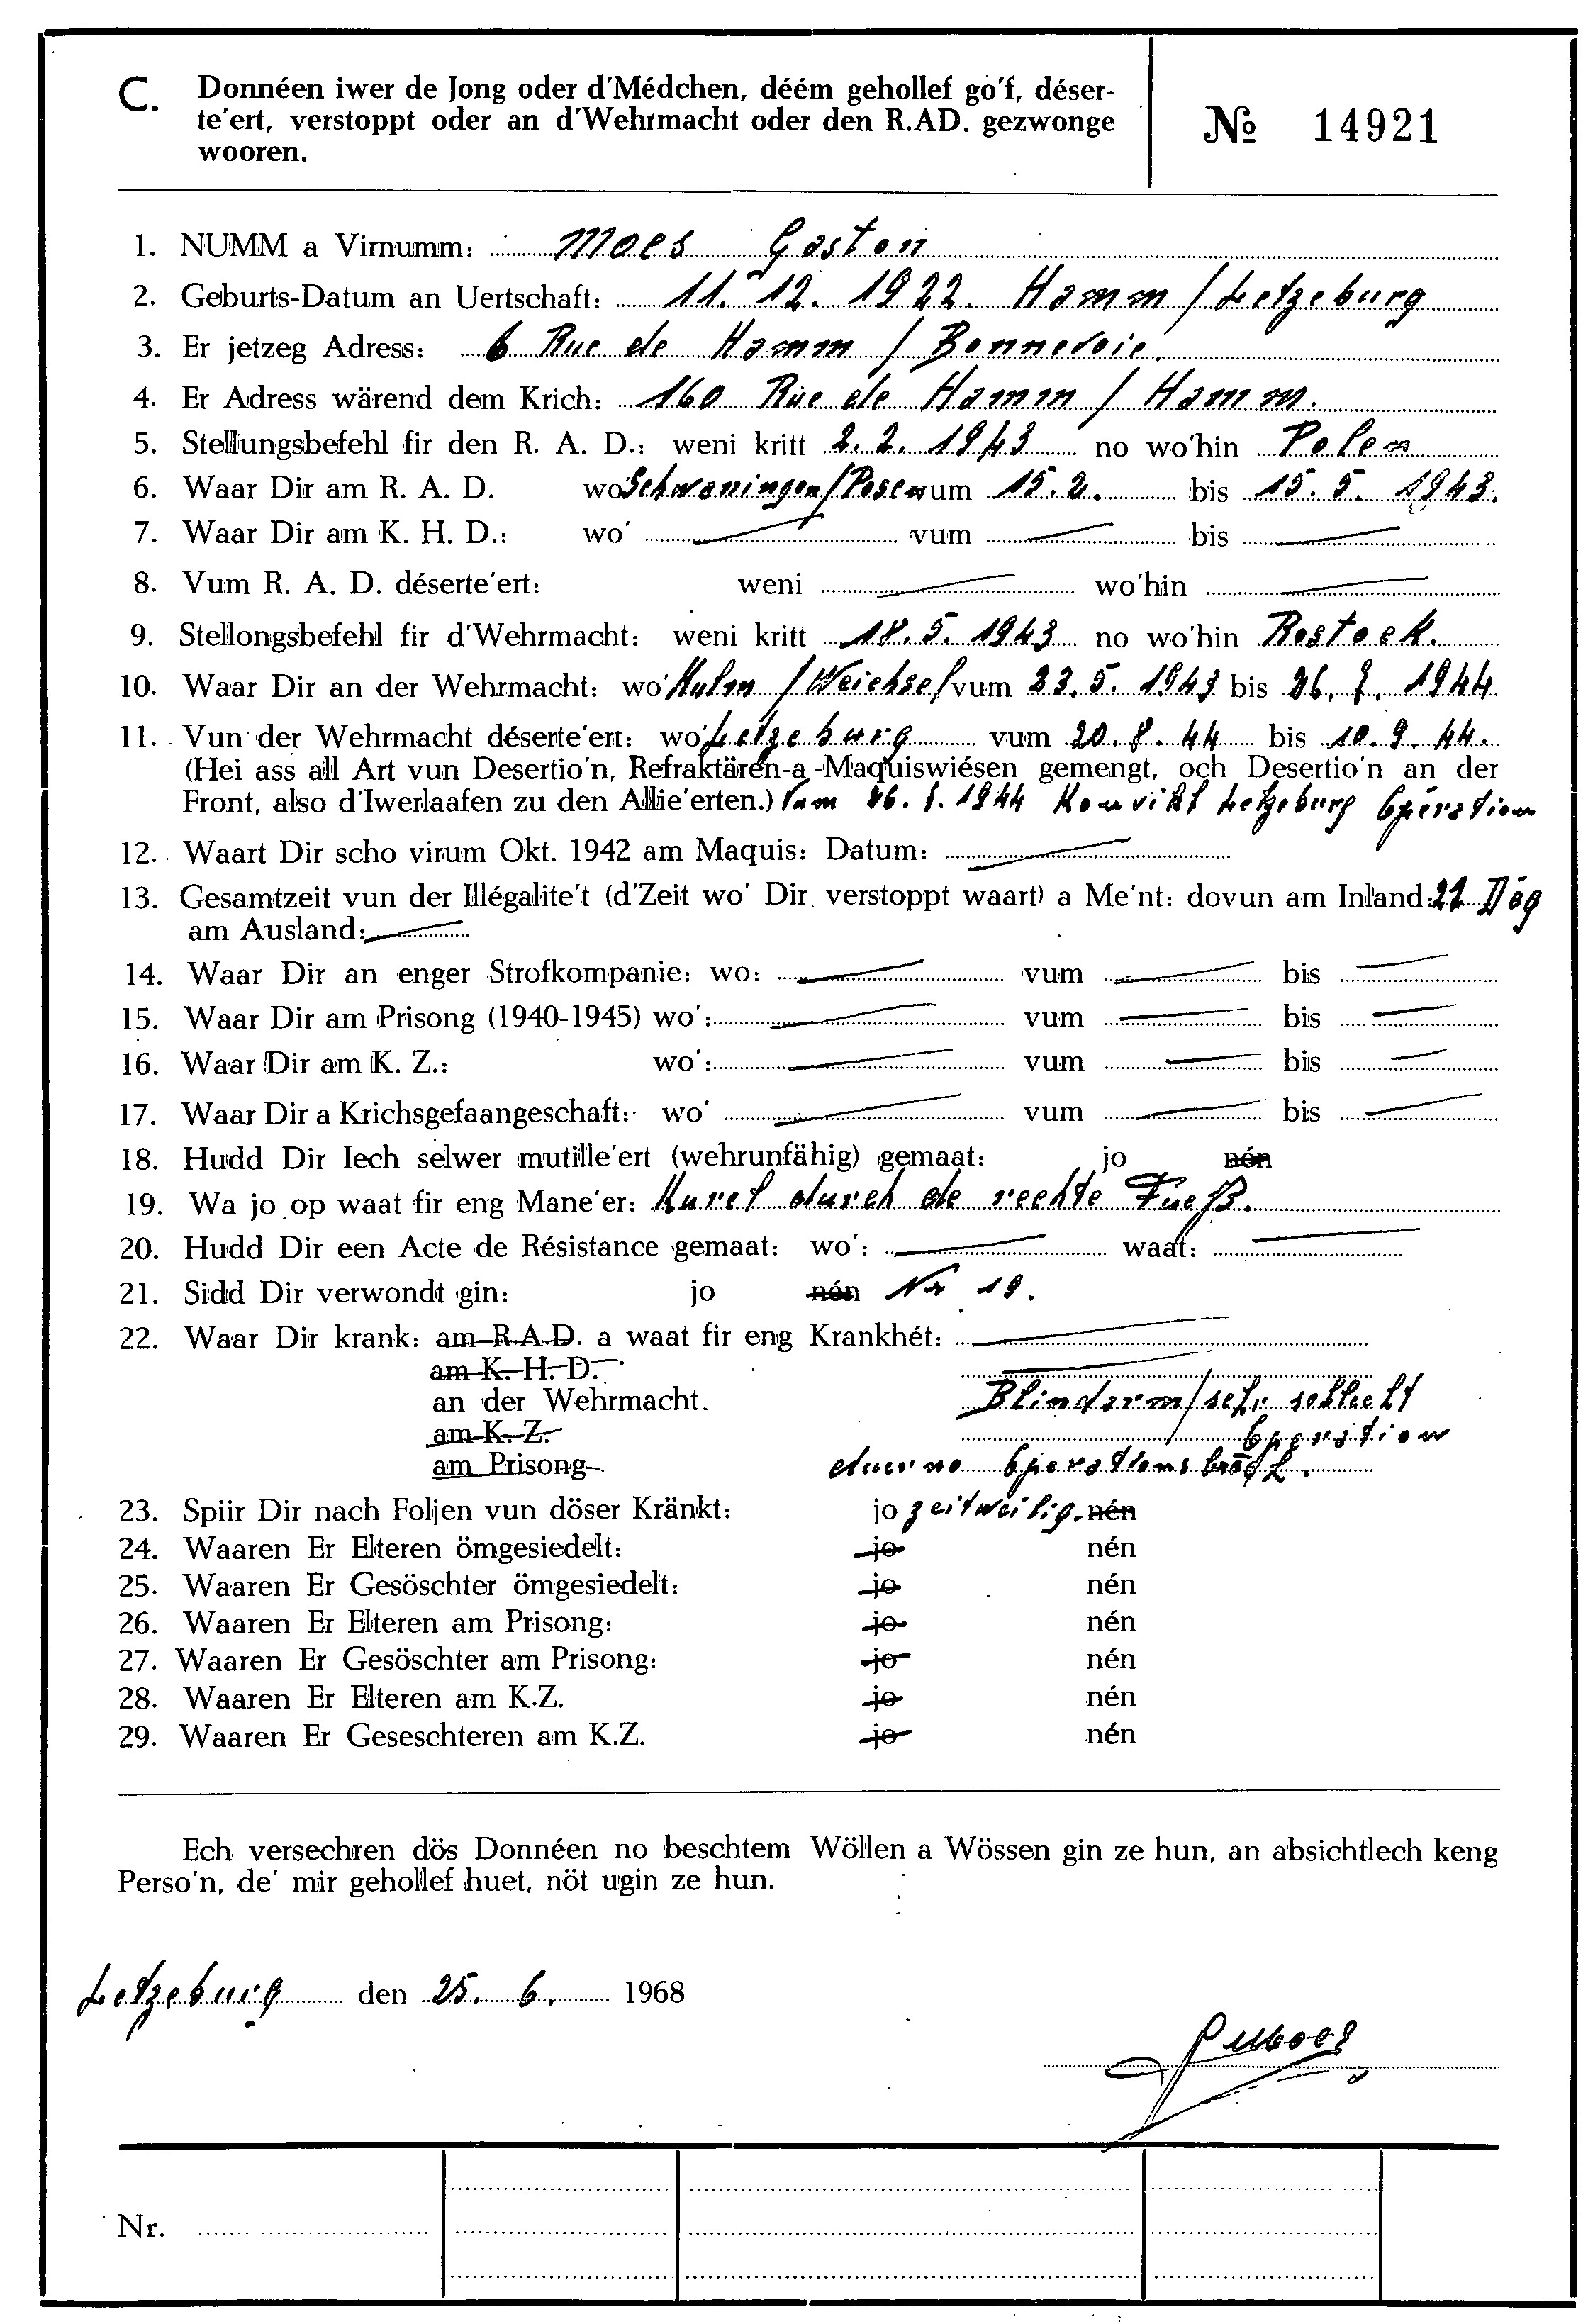 C. Donnéen iwer de Jong oder d'Médchen, déém gehollef go'f, déser-
te'ert, verstoppt oder an d'Wehrmacht oder den R.AD. gezwonge
wooren.
№ 14921
1. NUMM a Virnumm: Moes Gaston
2. Geburts-Datum an Uertschaft: 11. 12. 1922. Hamm / Letzeburg
3. Er jetzeg Adress: 6 Rue de Hamm / Bonnevoie.
4. Er Adress wärend dem Krich: 160 Rue de Hamm / Hamm.
5. Stellungsbefehl fir den R. A. D.: weni kritt 2. 2. 1943 no wo'hin Polen
6. Waar Dir am R. A. D. wo Schwaningen/Posen vum 15. 2. bis 15. 5. 1943.
7. Waar Dir am K. H. D.: wo' vum bis
8. Vum R. A. D. déserte'ert: weni wo'hin
9. Stellongsbefehl fir d'Wehrmacht: weni kritt 18. 5. 1943 no wo'hin Rostock.
10. Waar Dir an der Wehrmacht: wo' Kulm / Weichsel vum 23. 5. 1943 bis 26. 7. 1944
11. Vun der Wehrmacht déserte'ert: wo' Letzeburg vum 20. 8. 44 bis 10. 9. 44.
(Hei ass all Art vun Desertio'n, Refraktären-a -Maquiswiésen gemengt, och Desertio'n an der
Front, also d'Iwerlaafen zu den Allie'erten.) Vum 26. 7. 1944 Konvikt Letzeburg Operation
12. Waart Dir scho virum Okt. 1942 am Maquis: Datum:
13. Gesamtzeit vun der Illégalite't (d'Zeit wo' Dir verstoppt waart) a Me'nt: dovun am Inland: 22 Dég
am Ausland:
14. Waar Dir an enger Strofkompanie: wo: vum bis
15. Waar Dir am Prisong (1940-1945) wo': vum bis
16. Waar Dir am K. Z.: wo': vum bis
17. Waar Dir a Krichsgefaangeschaft: wo' vum bis
18. Hudd Dir Iech selwer mutille'ert (wehrunfähig) gemaat: jo nén
19. Wa jo op waat fir eng Mane'er: Kurel durch de rechte Fueß.
20. Hudd Dir een Acte de Résistance gemaat: wo': waat:
21. Sidd Dir verwondt gin: jo nén Nr 19.
22. Waar Dir krank: am R.A.D. a waat fir eng Krankhét:
am K. H. D.
an der Wehrmacht. Blindarm/sehr schlecht
am K. Z. Operation
am Prisong duerno Operationsbroch.
23. Spiir Dir nach Foljen vun döser Kränkt: jo zeitweilig. nén
24. Waaren Er Elteren ömgesiedelt: jo nén
25. Waaren Er Gesöschter ömgesiedelt: jo nén
26. Waaren Er Elteren am Prisong: jo nén
27. Waaren Er Gesöschter am Prisong: jo nén
28. Waaren Er Elteren am K.Z. jo nén
29. Waaren Er Geseschteren am K.Z. jo nén
Ech versechren dös Donnéen no beschtem Wöllen a Wössen gin ze hun, an absichtlech keng
Perso'n, de' mir gehollef huet, nöt ugin ze hun.
Letzeburg den 25. 6. 1968
Nr.